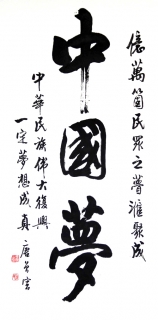 億萬箇民眾之夢匯聚成
中國夢
中華民族偉大復興
一定夢想成真